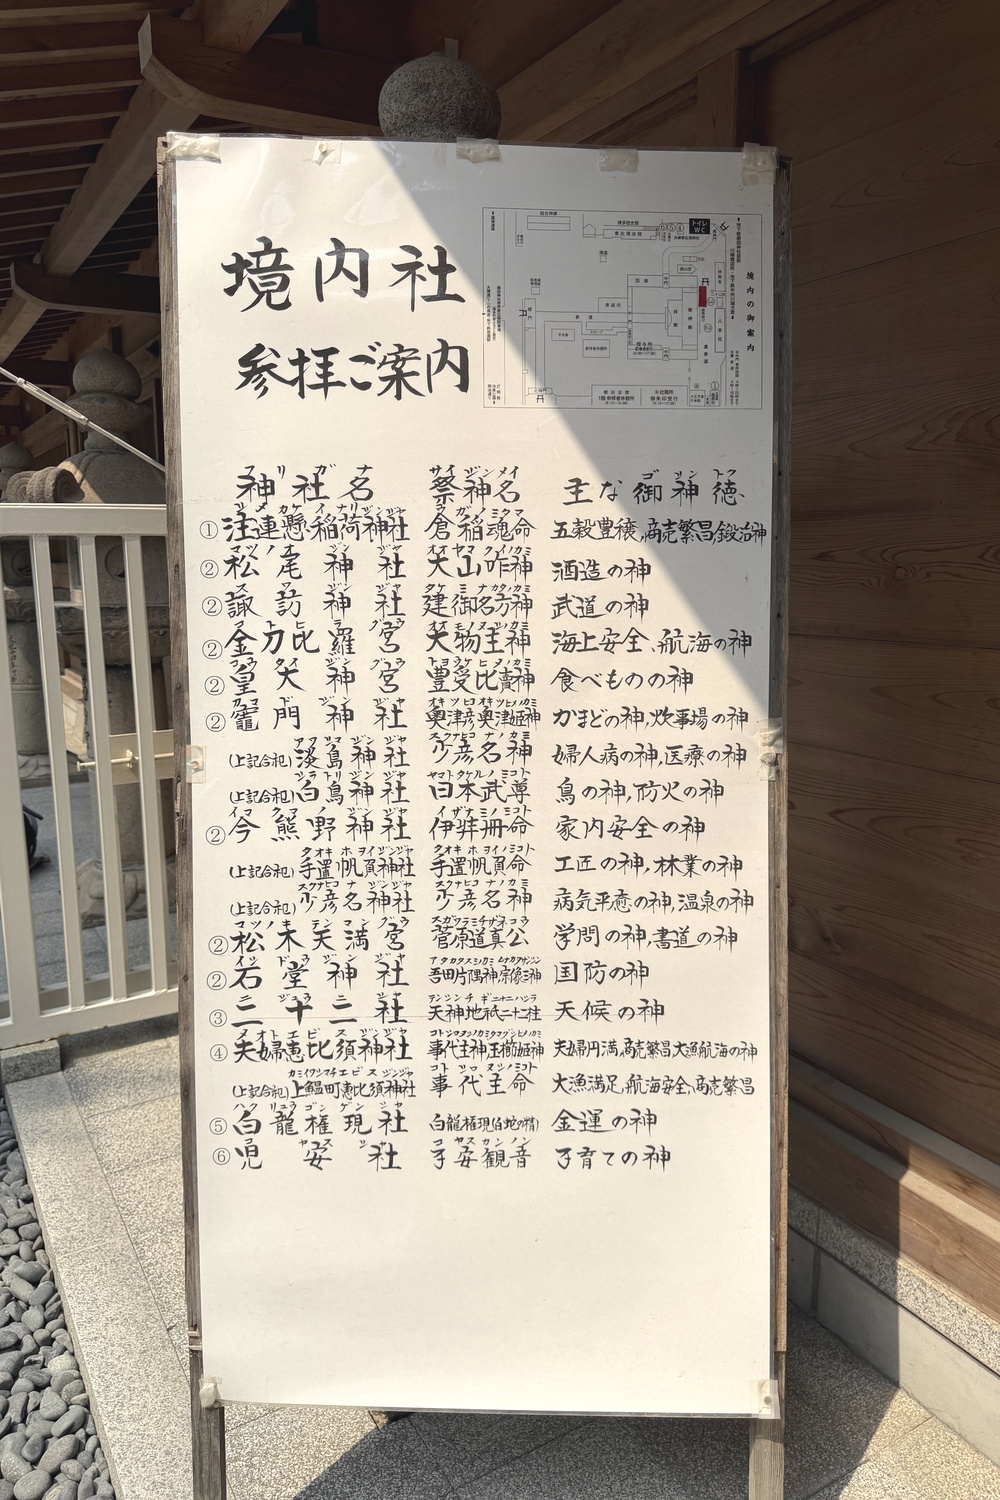 境内社
参拝ご案内
トイレ
WC
境内の御案内
神社名 祭神名 主な御神徳
①注連懸稲荷神社 倉稲魂命 五穀豊穣,商売繁昌,鍛冶神
②松尾神社 大山咋神 酒造の神
②諏訪神社 建御名方神 武道の神
②金刀比羅宮 大物主神 海上安全、航海の神
②皇大神宮 豊受比賣神 食べものの神
②竈門神社 奥津彦奥津姫神 かまどの神,炊事場の神
(上記合祀)淡島神社 少彦名神 婦人病の神,医療の神
(上記合祀)白鳥神社 日本武尊 鳥の神,防火の神
②今熊野神社 伊弉冊命 家内安全の神
(上記合祀)手置帆負神社 手置帆負命 工匠の神,林業の神
(上記合祀)少彦名神社 少彦名神 病気平癒の神,温泉の神
②松末天満宮 菅原道真公 学問の神,書道の神
②石堂神社 吾田片隅神,宗像三神 国防の神
③二十二社 天神地祇二十二柱 天候の神
④夫婦恵比須神社 事代主神玉櫛姫神 夫婦円満,商売繁昌大漁航海の神
(上記合祀)上鰮町恵比須神社 事代主命 大漁満足,航海安全,商売繁昌
⑤白龍権現社 白龍権現(白蛇の精) 金運の神
⑥児安社 子安観音 子育ての神